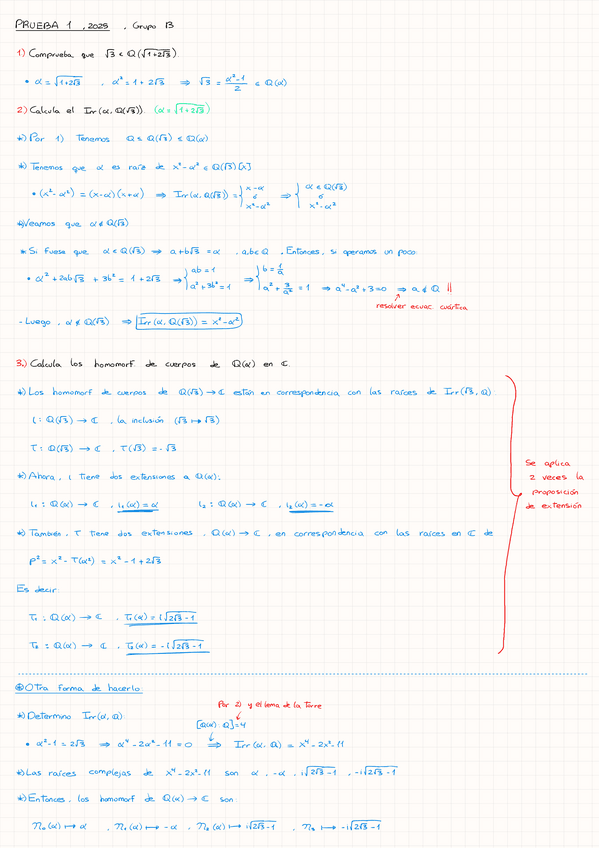 PRUEBA 1, 2025, Grupo B
1) Comprueba que √3 ∈ Q(√(1+2√3))
• α = √(1+2√3) , α² = 1 + 2√3 ⇒ √3 = (α²-1)/2 ∈ Q(α)
2) Calcula el Irr(α, Q(√3)). (α = √(1+2√3))
*) Por 1) Tenemos Q ≤ Q(√3) ≤ Q(α)
*) Tenemos que α es raíz de x² - α² ∈ Q(√3)[x]
• (x² - α²) = (x-α)(x+α) ⇒ Irr(α, Q(√3)) = { x-α ó x²-α² ⇒ { α ∈ Q(√3) ó x²-α²
*) Veamos que α ∉ Q(√3)
* Si fuese que α ∈ Q(√3) ⇒ a+b√3 = α , a,b ∈ Q . Entonces, si operamos un poco:
• a² + 2ab√3 + 3b² = 1 + 2√3 ⇒ { ab = 1 a² + 3b² = 1 ⇒ { b = 1/a a² + 3/a² = 1 ⇒ a⁴ - a² + 3 = 0 ⇒ a ∉ Q
resolver ecuac. cuártica
- Luego, α ∉ Q(√3) ⇒ Irr(α, Q(√3)) = x² - α²
3.) Calcula los homomorf. de cuerpos de Q(α) en C.
*) Los homomorf de cuerpos de Q(√3) → C están en correspondencia con las raíces de Irr(√3, Q)
ι : Q(√3) → C , la inclusión (√3 ↦ √3)
τ : Q(√3) → C , τ(√3) = -√3
*) Ahora, ι tiene dos extensiones a Q(α):
ι₁ : Q(α) → C , ι₁(α) = α ι₂ : Q(α) → C , ι₂(α) = -α
*) También, τ tiene dos extensiones, Q(α) → C, en correspondencia con las raíces en C de
p^τ = x² - τ(α²) = x² - 1 + 2√3
Es decir:
τ₁ : Q(α) → C , τ₁(α) = i√(2√3 - 1)
τ₂ : Q(α) → C , τ₂(α) = -i√(2√3 - 1)
Se aplica
2 veces la
proposición
de extensión
⊛ Otra forma de hacerlo:
Por 2) y el lema de la Torre
*) Determino Irr(α, Q):
[Q(α) : Q] = 4
• α² - 1 = 2√3 ⇒ α⁴ - 2α² - 11 = 0 ⇒ Irr(α, Q) = x⁴ - 2x² - 11
*) Las raíces complejas de x⁴ - 2x² - 11 son α, -α, i√(2√3 - 1), -i√(2√3 - 1)
*) Entonces, los homomorf de Q(α) → C son:
η₁(α) ↦ α , η₂(α) ↦ -α , η₃(α) ↦ i√(2√3 - 1) , η₄ ↦ -i√(2√3 - 1)